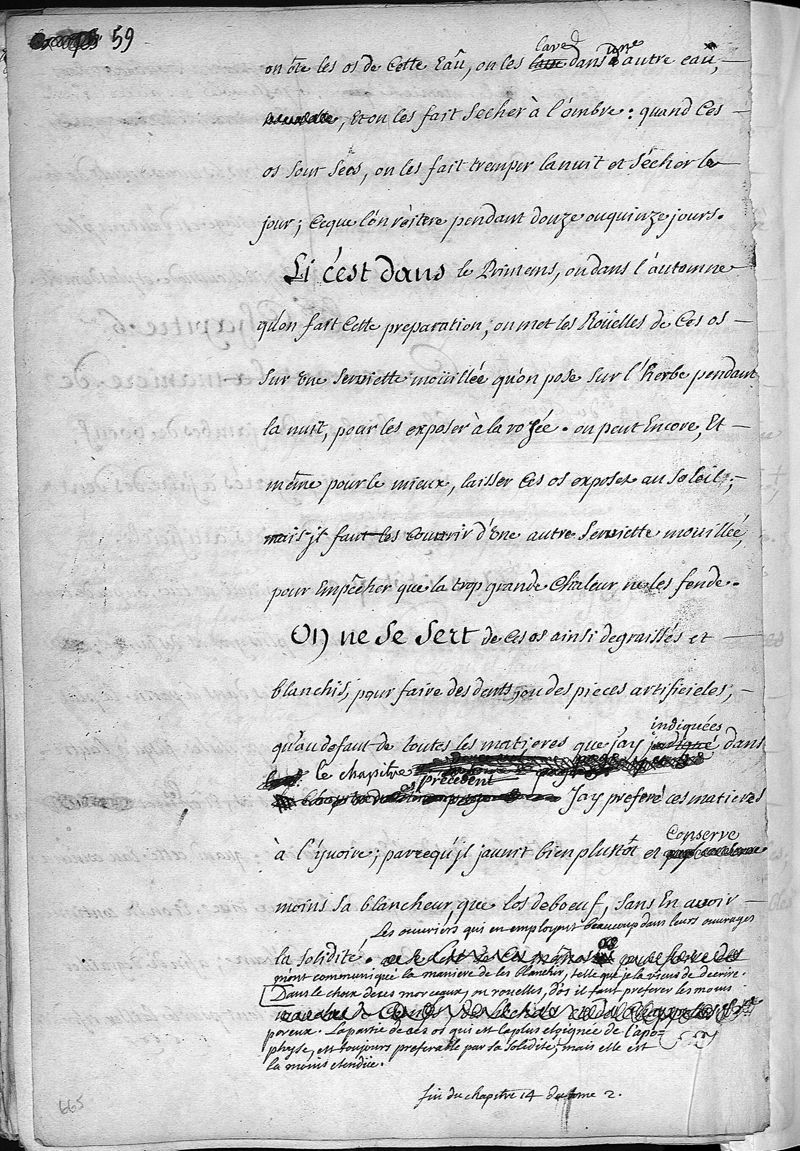 59
on ôte les os de Cette Eaü, on les lavé dans une autre eaü,
, Et on les fait secher à l'ombre: quand Ces
os sont secs, on les fait tremper la nuit et sécher le
jour; Ceque l'on réitere pendant douze ou quinze jours.
Si c'est dans le Printems, ou dans l'automne
qu'on fait Cette preparation, on met les Roüelles de Ces os
sur une serviette moüillée qu'on pose sur l'Herbe pendant
la nuit, pour les exposer à la rozée. on peut Encore, Et
même pour le mieux, laisser Ces os exposez au soleil;
mais jl faut les couvrir d'une autre serviette mouillée,
pour Empêcher que la trop grande Chaleur ne les fende.
On ne se sert de Ces os ainsi degraissés et
blanchis, pour faire des dents, ou des pieces artificieles,
qu'au defaut de toutes les matieres que j'ay indiquées dans
le chapitre
précédent
J'ay preferé ces matieres
à l'yvoire; parcequ'jl jaunit bien plustôt et Conserve
moins sa blancheur, que l'os de boeuf, sans En avoir
la solidité. Les ouvriers qui en employent beaucoup dans leurs ouvrages
m'ont communiqué la maniere de les blanchir, telle que je la viens de décrire.
Dans le choix de ces morceaux, ou rouelles, d'os il faut preferer les moins
poreux. La partie de ces os qui est la plus eloignée de l'apo-
physe, est toujours preferable par sa solidité; mais elle est
la moins etendüe.
fin du chapitre 14 du tome 2.
665